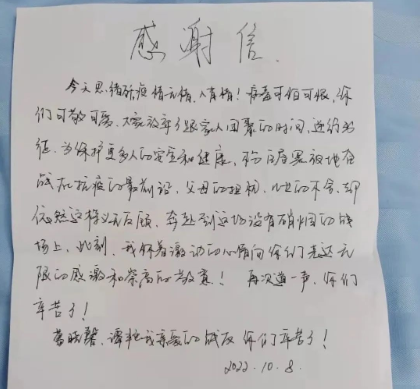 感谢信.
今天思绪新疫情无情,人有情!病毒可怕可恨,你
们可敬可爱,大家放弃了跟家人团聚的时间,逆行出
征.为保护更多人的安全和健康,不怕劳累被地奋
战在抗疫的最前沿,父母的担忧,儿女的不舍,却
依然这样义无反顾,奔赴到这场没有硝烟的战
场上,此刻,我怀着激动的心情向你们表达无
限的感激和崇高的敬意!再次道一声,你们
辛苦了!
谭艳我亲爱的战友你们辛苦了!
2022.10.8.